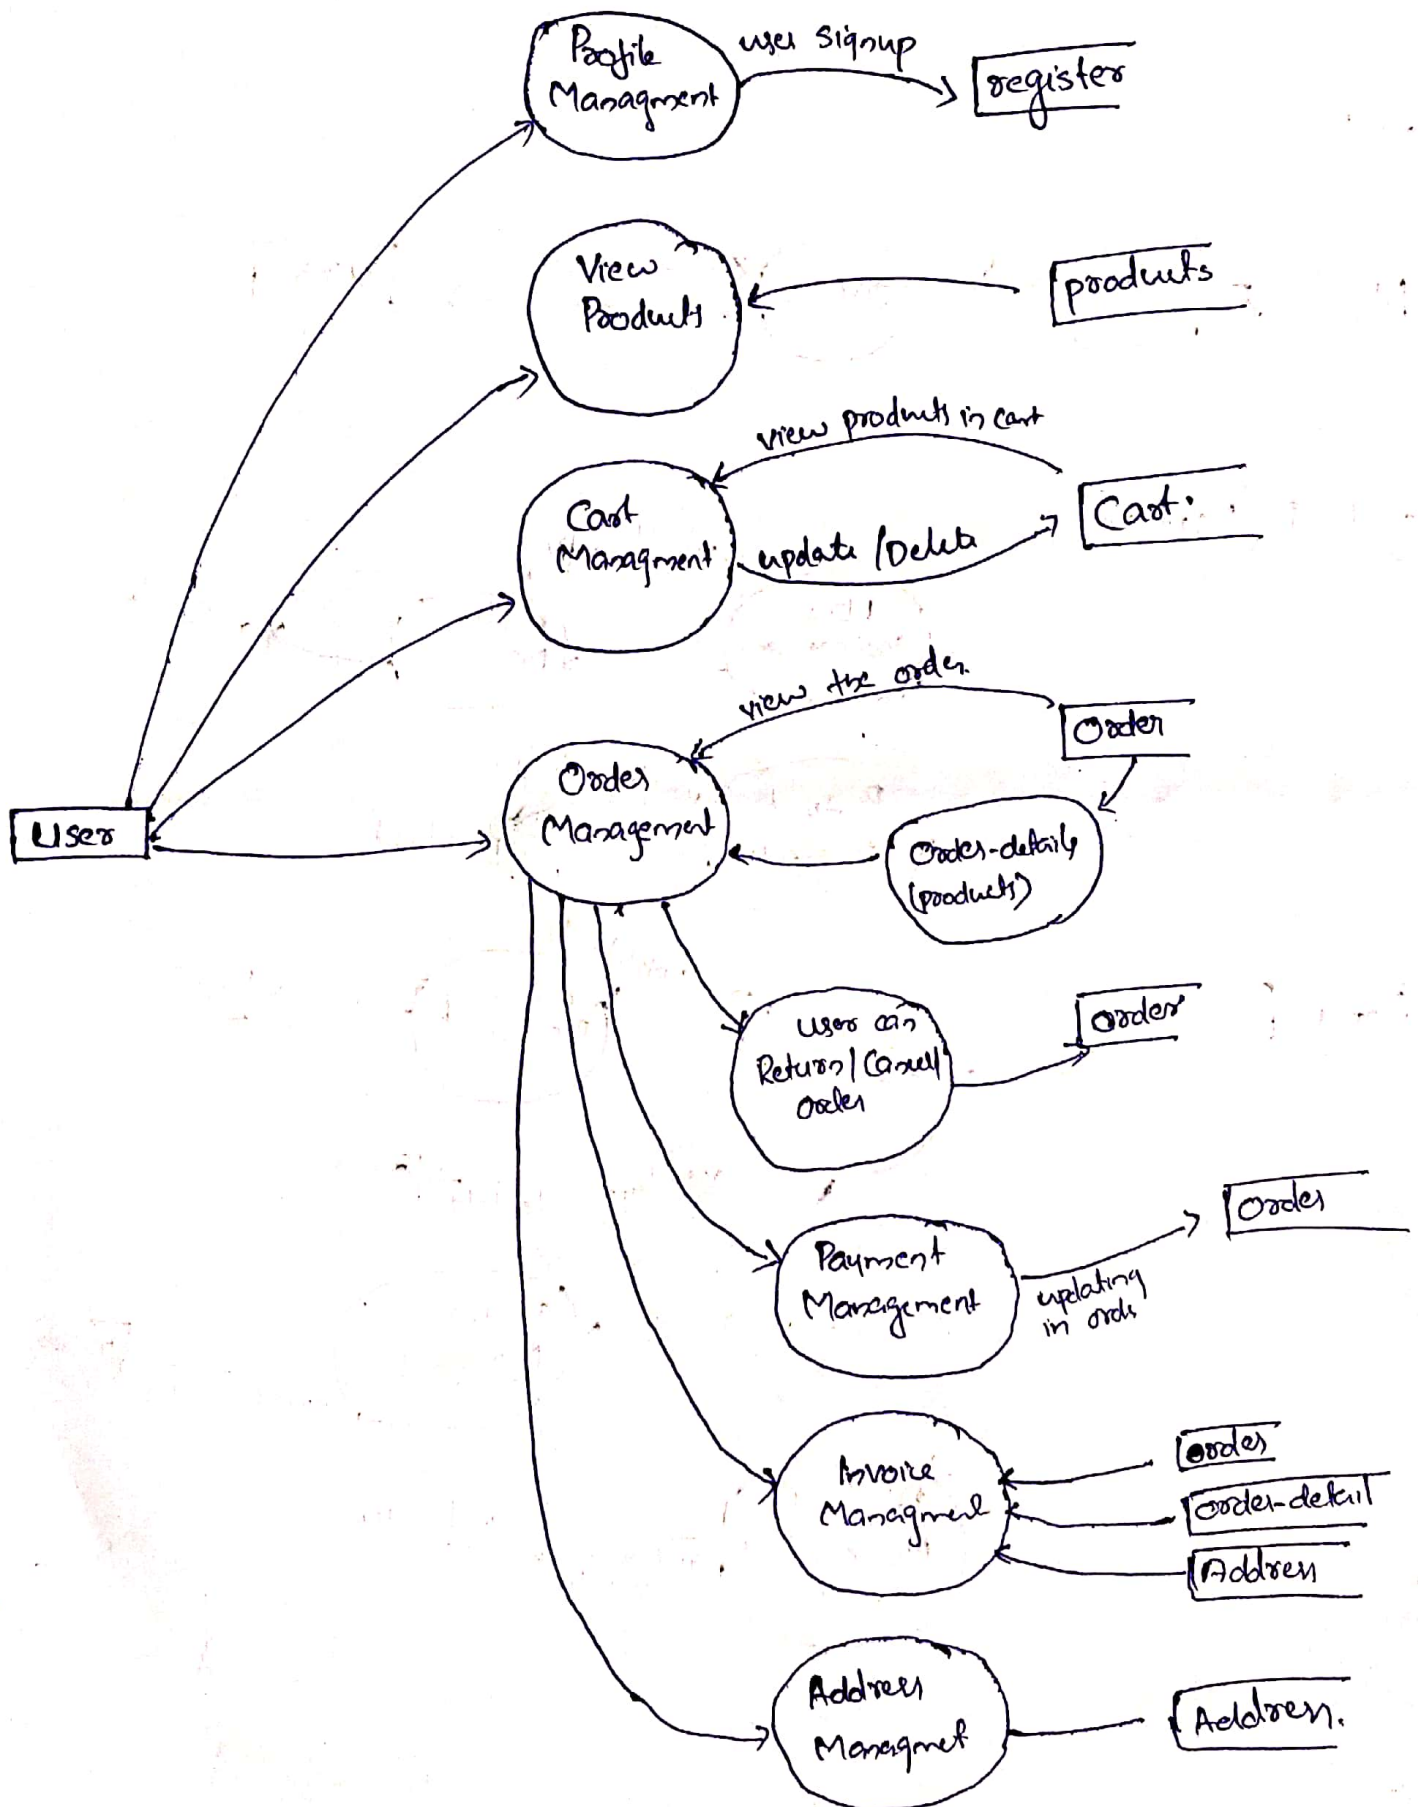 Profile
Managment
user signup
register
View
Products
products
view products in cart
Cart
Managment
update / Delete
Cart.
view the order.
Order
Order
Management
User
Order-details
(products)
user can
Return/Cancel/
order
order
Payment
Management
updating
in order
Order
Invoice
Managment
order
order-detail
Address
Address
Managmet
Address.